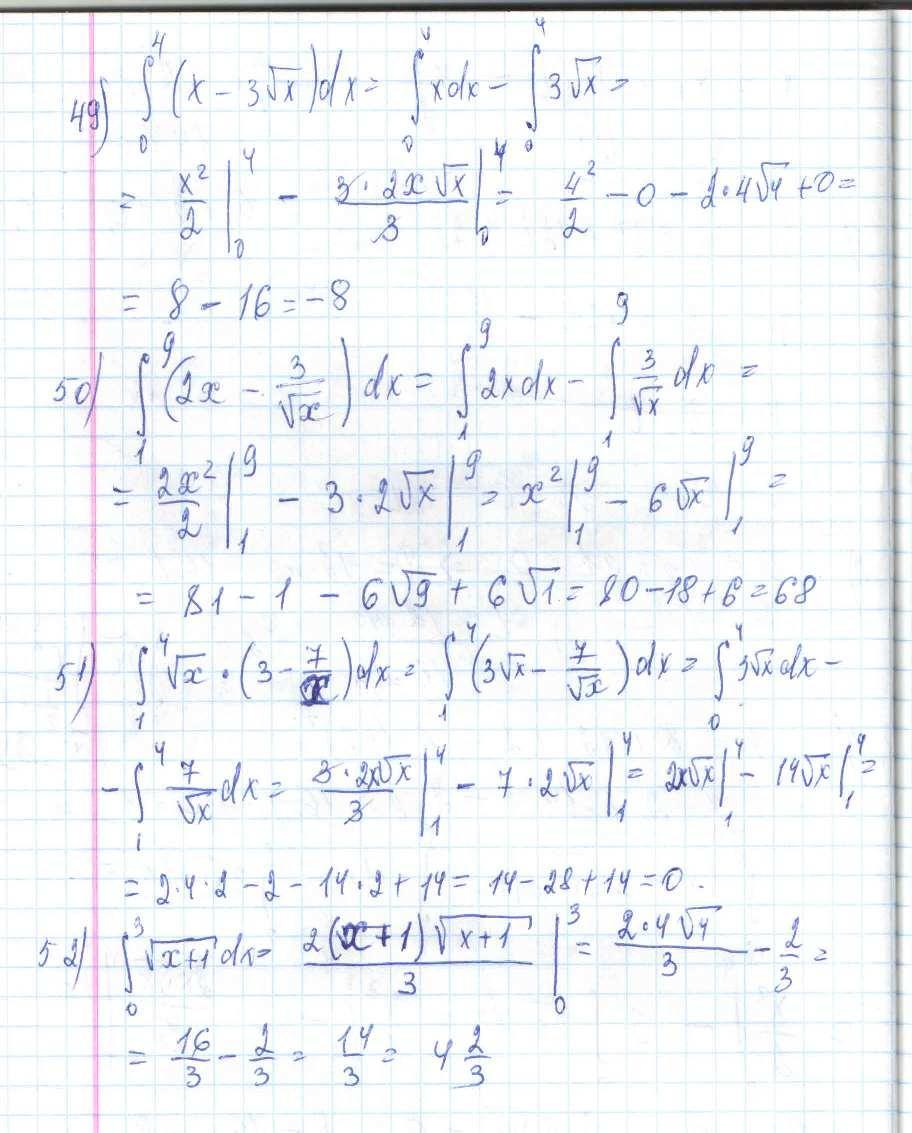 49) ∫₀⁴ (x − 3√x)dx = ∫₀⁴ xdx − ∫₀⁴ 3√x =
= x²/2 |₀⁴ − 3·2x√x/3 |₀⁴ = 4²/2 − 0 − 2·4√4 + 0 =
= 8 − 16 = −8
50) ∫₁⁹ (2x − 3/√x) dx = ∫₁⁹ 2xdx − ∫₁⁹ 3/√x dx =
= 2x²/2 |₁⁹ − 3·2√x |₁⁹ = x² |₁⁹ − 6√x |₁⁹ =
= 81 − 1 − 6√9 + 6√1 = 80 − 18 + 6 = 68
51) ∫₁⁴ √x · (3 − 7/x)dx = ∫₁⁴ (3√x − 7/√x) dx = ∫₀⁴ 3√x dx −
− ∫₁⁴ 7/√x dx = 3·2x√x/3 |₁⁴ − 7·2√x |₁⁴ = 2x√x |₁⁴ − 14√x |₁⁴ =
= 2·4·2 − 2 − 14·2 + 14 = 14 − 28 + 14 = 0.
52) ∫₀³ √(x+1) dx = 2(x+1)√(x+1)/3 |₀³ = 2·4√4/3 − 2/3 =
= 16/3 − 2/3 = 14/3 = 4 2/3